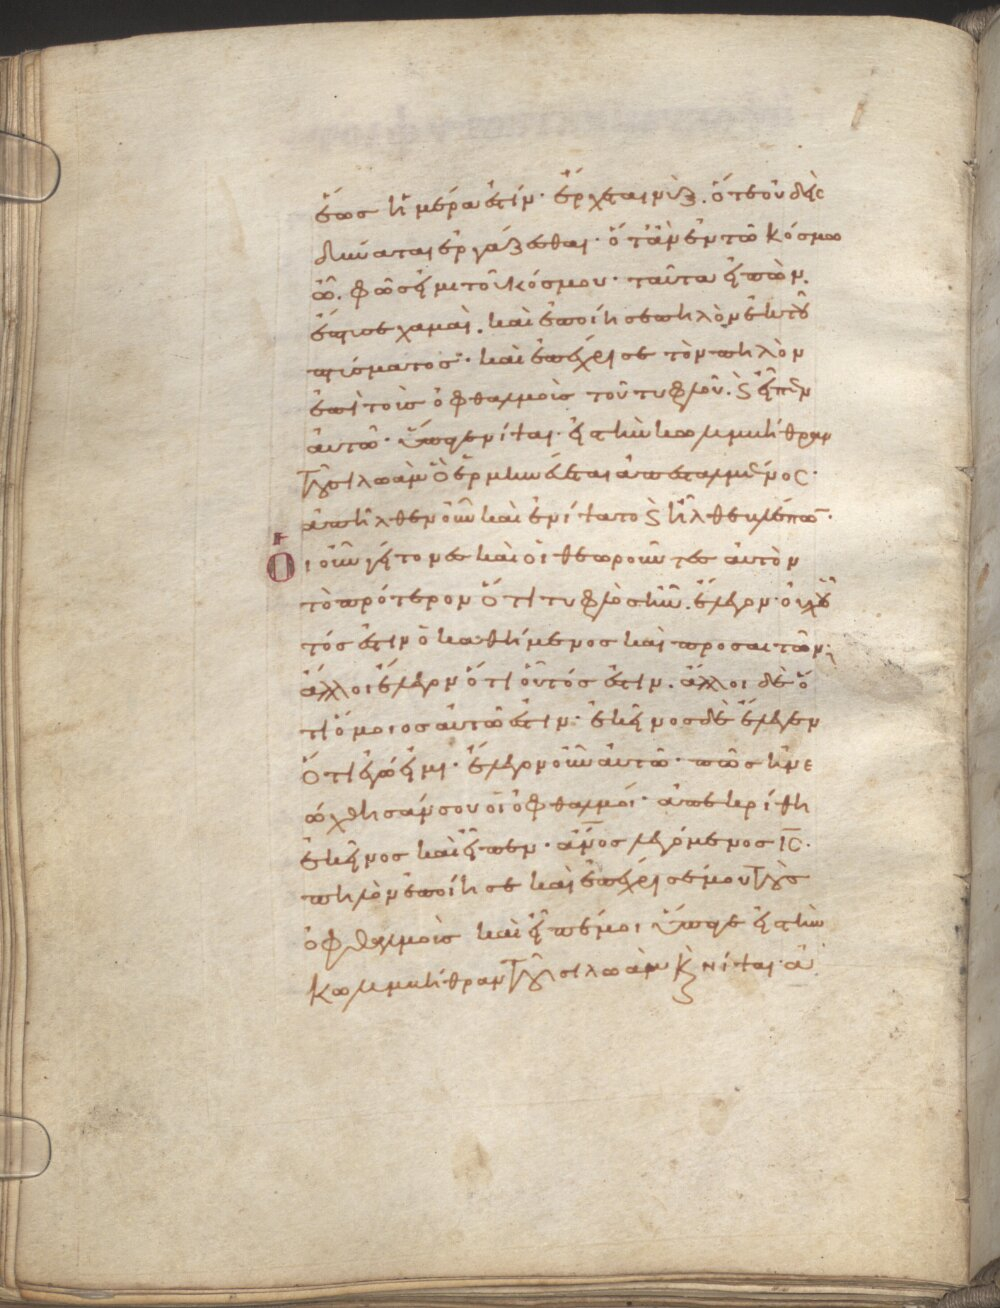 ἕως ἡμέρα ἐστίν· ἔρχεται νὺξ. ὅτε οὐδεὶς
δύναται ἐργάζεσθαι· ὅτἂν ἐν τῶ κόσμω
ὦ. φῶς εἰμι τοῦ κόσμου· ταῦτα εἰπὼν.
ἔπτυσε χαμαὶ. καὶ ἐποίησε πηλὸν ἐκ τοῦ
πτύσματος· καὶ ἐπέχρισε τὸν πηλὸν
ἐπὶ τοὺς ὀφθαλμοὺς τοῦ τυφλοῦ. ϗ εἶπεν
αὐτῶ· ὕπαγε νίψαι· εἰς τὴν κολυμβήθραν
τοῦ σιλωὰμ ὃ ἑρμηνεύεται ἀπεσταλμένος·
ἀπῆλθεν οὖν καὶ ἐνίψατο ϗ ἦλθε βλέπων·
Οἱ οὖν γείτονες καὶ οἱ θεωροῦντες αὐτὸν
τὸ πρότερον ὅτι τυφλὸς ἦν. ἔλεγον· οὐχ οὗ
τός ἐστιν ὁ καθήμενος καὶ προσαιτῶν;
ἄλλοι ἔλεγον ὅτι οὗτός ἐστιν. ἄλλοι δὲ ὅ
τι ὅμοιος αὐτῶ ἐστιν· ἐκεῖνος δὲ ἔλεγεν
ὅτι ἐγώ εἰμι· ἔλεγον οὖν αὐτῶ· πῶς ἠνε
ώχθησάν σου οἱ ὀφθαλμοί· ἀπεκρίθη
ἐκεῖνος καὶ εἶπεν· ἄνος λεγόμενος ις·
πηλὸν ἐποίησε καὶ ἐπέχρισέ μου τοὺς
ὀφθαλμοὺς καὶ εἶπέ μοι ὕπαγε εἰς τὴν
κολυμβήθραν τοῦ σιλωὰμ ϗ νίψαι· ἀ